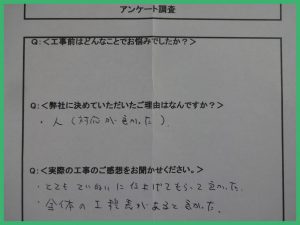 アンケート調査
Q:<工事前はどんなことでお悩みでしたか?>
Q:<弊社に決めていただいたご理由はなんですか?>
・人(対応が良かった)。
Q:<実際の工事のご感想をお聞かせください。>
・とてもていねいに仕上げてもらって良かった。
・全体の工程表があると良かった。